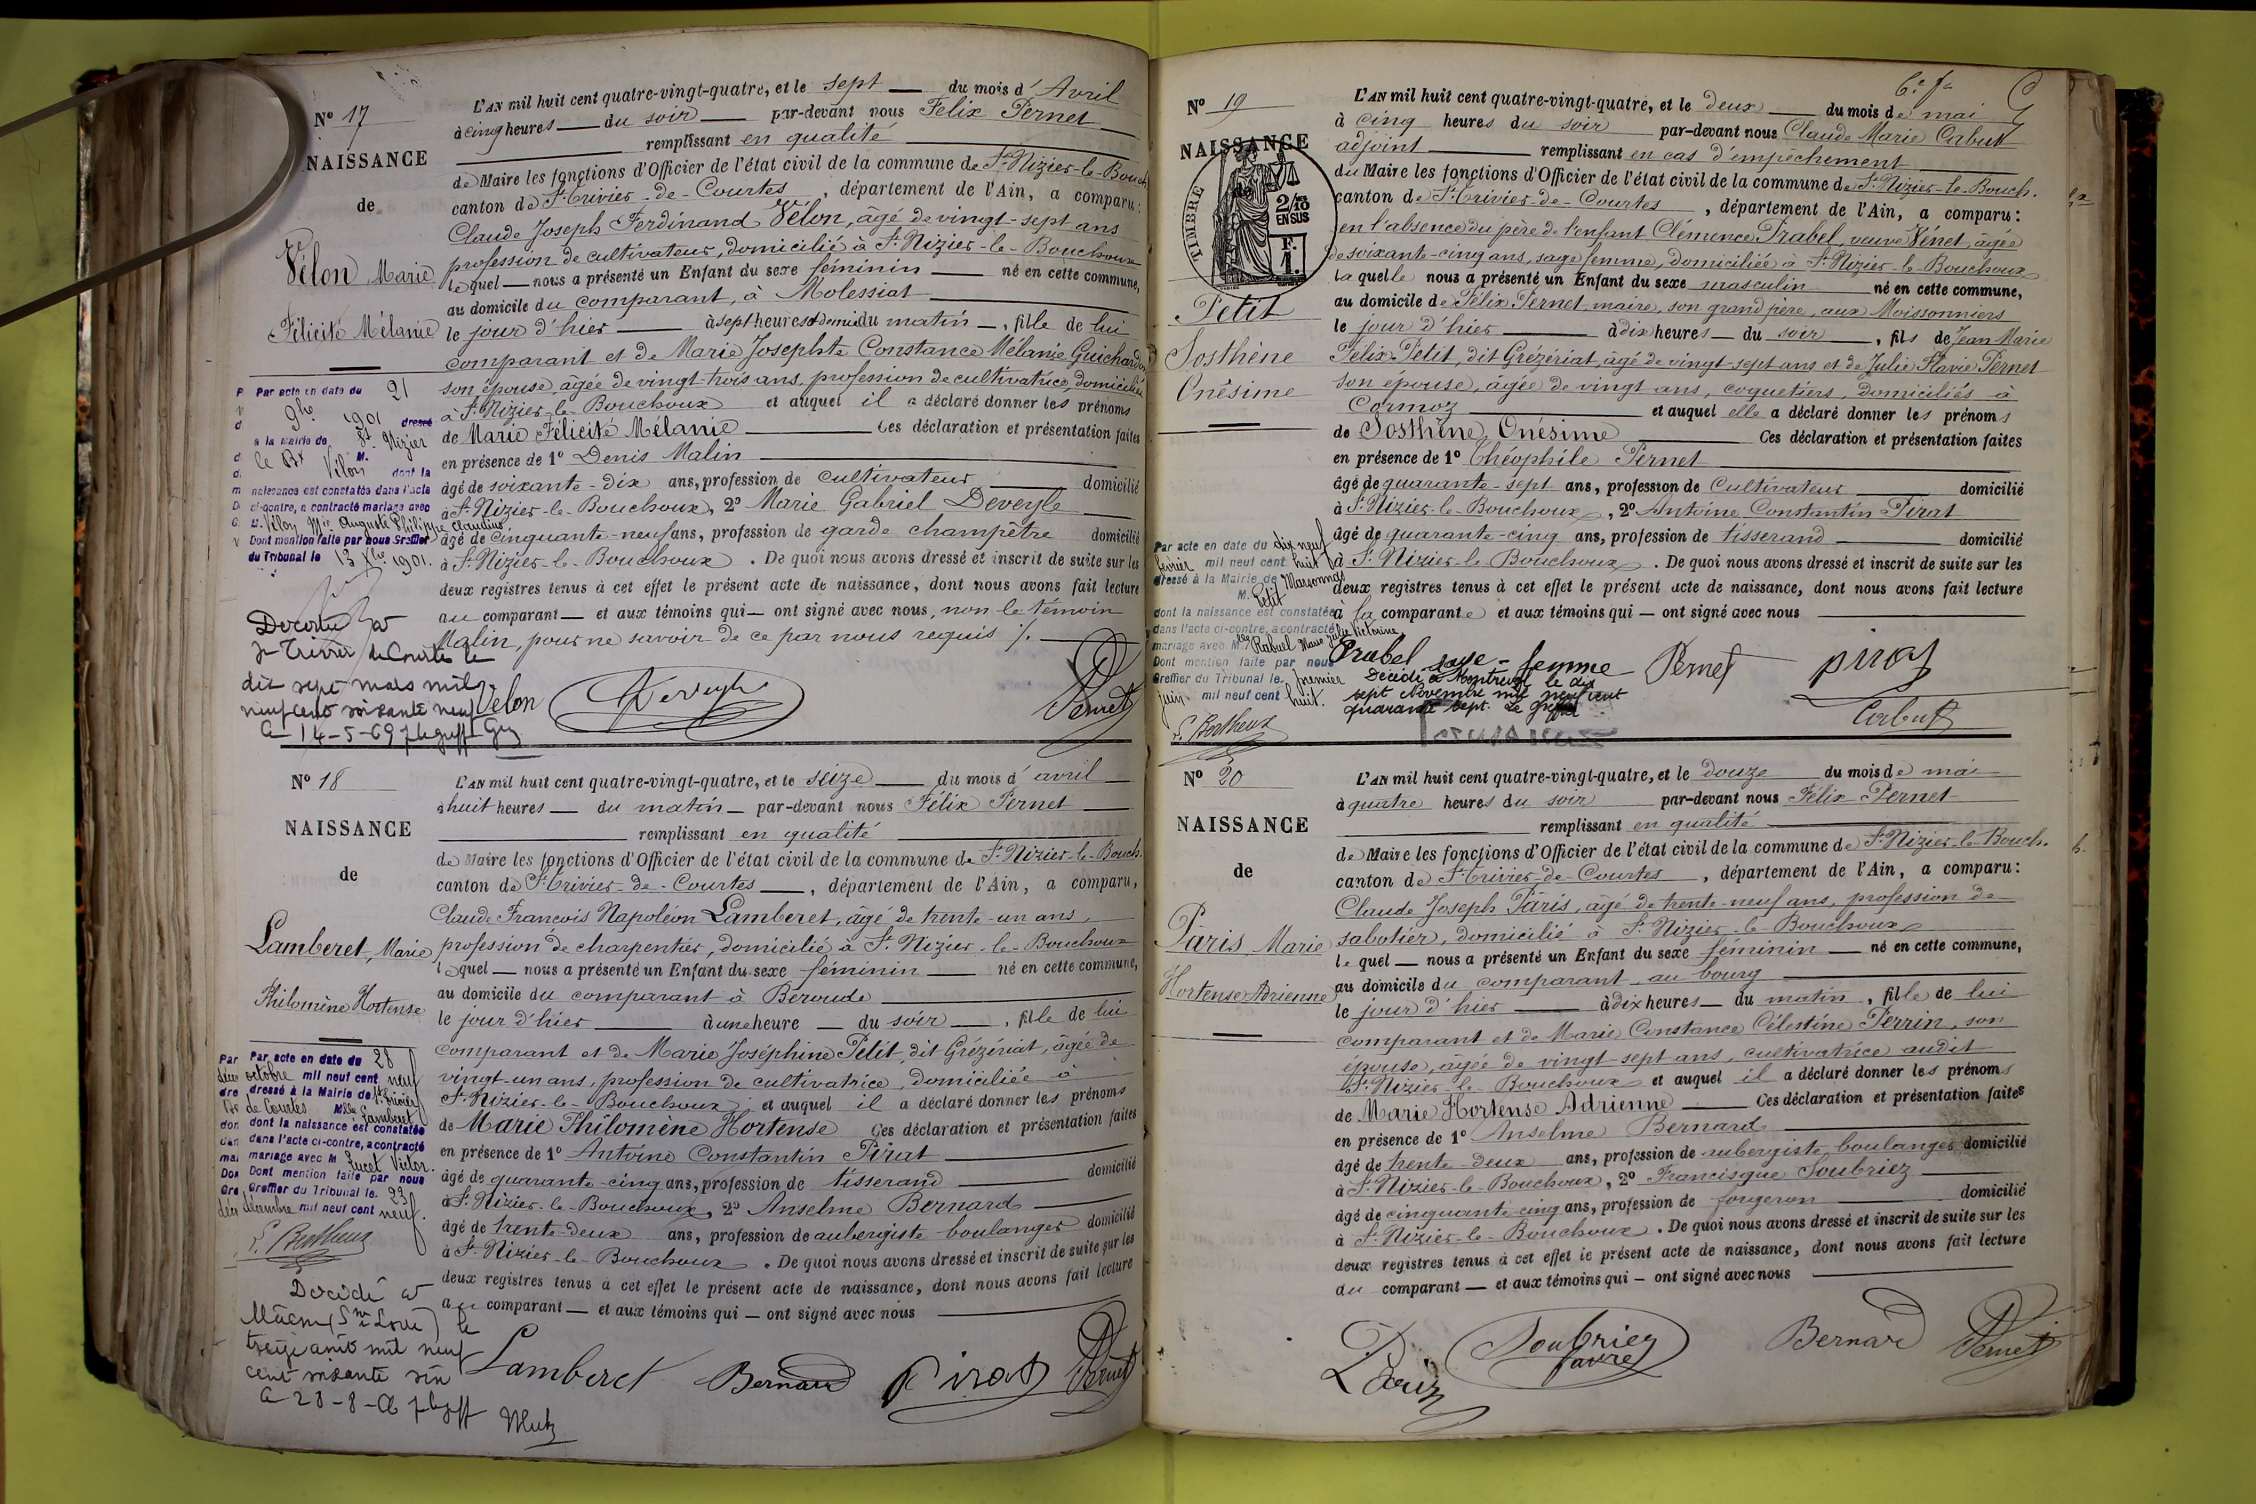 Nº 17
NAISSANCE
de
Vélon, Marie
Félicité Mélanie
L'AN mil huit cent quatre-vingt-quatre, et le sept du mois d'Avril
à cinq heures du soir par-devant nous Félix Pernet
remplissant en qualité
de Maire les fonctions d'Officier de l'état civil de la commune de St Nizier-le-Bouch.
canton de St Trivier-de-Courtes, département de l'Ain, a comparu:
Claude Joseph Ferdinand Vélon, âgé de vingt-sept ans
profession de cultivateur, domicilié à St Nizier-le-Bouchoux
lequel nous a présenté un Enfant du sexe féminin né en cette commune,
au domicile du comparant, à Molessiat
le jour d'hier à sept heures et demie du matin, fille de lui
comparant et de Marie Josephte Constance Mélanie Guichardon
son épouse, âgée de vingt-trois ans, profession de cultivatrice, domiciliée
à St Nizier-le-Bouchoux et auquel il a déclaré donner les prénoms
de Marie Félicité Mélanie Ces déclaration et présentation faites
en présence de 1º Denis Malin
âgé de soixante-dix ans, profession de cultivateur domicilié
à St Nizier-le-Bouchoux, 2º Marie Gabriel Deveyle
âgé de cinquante-neuf ans, profession de garde champêtre domicilié
à St Nizier-le-Bouchoux. De quoi nous avons dressé et inscrit de suite sur les
deux registres tenus à cet effet le présent acte de naissance, dont nous avons fait lecture
au comparant et aux témoins qui ont signé avec nous, non le témoin
Malin, pour ne savoir de ce par nous requis ./.
Par acte en date du 21
9bre 1901 dressé
à la mairie de St Nizier
le Bx M. Vélon dont la
naissance est constatée dans l'acte
ci-contre, a contracté mariage avec
M. Vélon Mie Auguste Philippe Claudius
Dont mention faite par nous Greffier
du Tribunal le 13 Xbre 1901.
Décédée à
St Trivier de Courtes le
dix sept mars mil
neuf cent soixante neuf
Le 14-5-69
Vélon Deveyle Pernet
Nº 18
NAISSANCE
de
Lamberet, Marie
Philomène Hortense
L'AN mil huit cent quatre-vingt-quatre, et le seize du mois d'avril
à huit heures du matin par-devant nous Félix Pernet
remplissant en qualité
de Maire les fonctions d'Officier de l'état civil de la commune de St Nizier-le-Bouch.
canton de St Trivier-de-Courtes, département de l'Ain, a comparu,
Claude François Napoléon Lamberet, âgé de trente-un ans,
profession de charpentier, domicilié à St Nizier-le-Bouchoux
lequel nous a présenté un Enfant du sexe féminin né en cette commune,
au domicile du comparant à Beroude
le jour d'hier à une heure du soir, fille de lui
comparant et de Marie Joséphine Petit, dit Grézériat, âgée de
vingt-un ans, profession de cultivatrice, domiciliée à
St Nizier-le-Bouchoux et auquel il a déclaré donner les prénoms
de Marie Philomène Hortense Ces déclaration et présentation faites
en présence de 1º Antoine Constantin Pirat
âgé de quarante-cinq ans, profession de tisserand domicilié
à St Nizier-le-Bouchoux, 2º Anselme Bernard
âgé de trente-deux ans, profession de aubergiste boulanger domicilié
à St Nizier-le-Bouchoux. De quoi nous avons dressé et inscrit de suite sur les
deux registres tenus à cet effet le présent acte de naissance, dont nous avons fait lecture
au comparant et aux témoins qui ont signé avec nous
Par acte en date du 28
octobre mil neuf cent neuf
dressé à la Mairie de St Trivier
de Courtes Mlle Lamberet
dont la naissance est constatée
dans l'acte ci-contre, a contracté
mariage avec M Lucet Victor.
Dont mention faite par nous
Greffier du Tribunal le 23
décembre mil neuf cent neuf.
Décédée à
Mâcon (S. & Loire) le
treize août mil neuf
cent soixante six
Le 28-8-66
Lamberet Bernard Pirat Pernet
Nº 19
NAISSANCE
de
TIMBRE
2/10
EN SUS
F.
1.
Petit
Sosthène
Onésime
L'AN mil huit cent quatre-vingt-quatre, et le deux du mois de mai
à cinq heures du soir par-devant nous Claude Marie Carbut
adjoint remplissant en cas d'empêchement
du Maire les fonctions d'Officier de l'état civil de la commune de St Nizier-le-Bouch.
canton de St Trivier-de-Courtes, département de l'Ain, a comparu:
en l'absence du père de l'enfant Clémence Prabel, veuve Vénet, âgée
de soixante-cinq ans, sage femme, domiciliée à St Nizier-le-Bouchoux
laquelle nous a présenté un Enfant du sexe masculin né en cette commune,
au domicile de Félix Pernet, maire, son grand père, aux Moissonniers
le jour d'hier à dix heures du soir, fils de Jean Marie
Félix Petit, dit Grézériat, âgé de vingt-sept ans et de Julie Flavie Pernet
son épouse, âgée de vingt ans, coquetiers, domiciliés à
Cormoz et auquel elle a déclaré donner les prénoms
de Sosthène, Onésime Ces déclaration et présentation faites
en présence de 1º Théophile Pernet
âgé de quarante-sept ans, profession de Cultivateur domicilié
à St Nizier-le-Bouchoux, 2º Antoine Constantin Pirat
âgé de quarante-cinq ans, profession de tisserand domicilié
à St Nizier-le-Bouchoux. De quoi nous avons dressé et inscrit de suite sur les
deux registres tenus à cet effet le présent acte de naissance, dont nous avons fait lecture
à la comparante et aux témoins qui ont signé avec nous
Par acte en date du dix neuf
février mil neuf cent huit
dressé à la Mairie de Marsonnas
M. Petit
dont la naissance est constatée
dans l'acte ci-contre, a contracté
mariage avec Mlle Rabuel Marie Julie Victorine
Dont mention faite par nous
Greffier du Tribunal le premier
juin mil neuf cent huit.
Prabel sage-femme Pernet Pirat
Décédé à Montrevel le dix
sept Novembre mil neuf cent
quarante sept. Le Greffier
Carbut
Nº 20
NAISSANCE
de
Paris, Marie
Hortense Adrienne
L'AN mil huit cent quatre-vingt-quatre, et le douze du mois de mai
à quatre heures du soir par-devant nous Félix Pernet
remplissant en qualité
de Maire les fonctions d'Officier de l'état civil de la commune de St Nizier-le-Bouch.
canton de St Trivier-de-Courtes, département de l'Ain, a comparu:
Claude Joseph Paris, âgé de trente-neuf ans, profession de
sabotier, domicilié à St Nizier-le-Bouchoux
lequel nous a présenté un Enfant du sexe féminin né en cette commune,
au domicile du comparant au bourg
le jour d'hier à dix heures du matin, fille de lui
comparant et de Marie Constance Célestine Perrin, son
épouse, âgée de vingt-sept ans, cultivatrice audit
St Nizier-le-Bouchoux et auquel il a déclaré donner les prénoms
de Marie Hortense Adrienne Ces déclaration et présentation faites
en présence de 1º Anselme Bernard
âgé de trente-deux ans, profession de aubergiste boulanger domicilié
à St Nizier-le-Bouchoux, 2º Francisque Soubriez
âgé de cinquante-cinq ans, profession de forgeron domicilié
à St Nizier-le-Bouchoux. De quoi nous avons dressé et inscrit de suite sur les
deux registres tenus à cet effet le présent acte de naissance, dont nous avons fait lecture
au comparant et aux témoins qui ont signé avec nous
Paris Soubriez Bernard Pernet